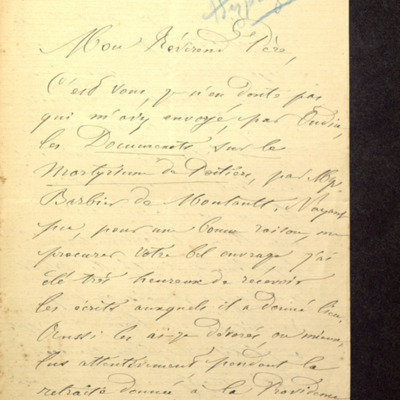 Mon Révérend Père,
C'est vous, je n'en doute pas
qui m'avez envoyé, par
les Documents sur le
Martyrium de Poitiers, par Mgr
Barbier de Montault. N'ayant
pu, pour une bonne raison, me
procurer votre bel ouvrage j'ai
été très heureux de recevoir
les écrits auxquels il a donné lieu.
Aussi les ai-je dévorés, ou mieux,
lus attentivement pendant la
retraite donnée à la Providence